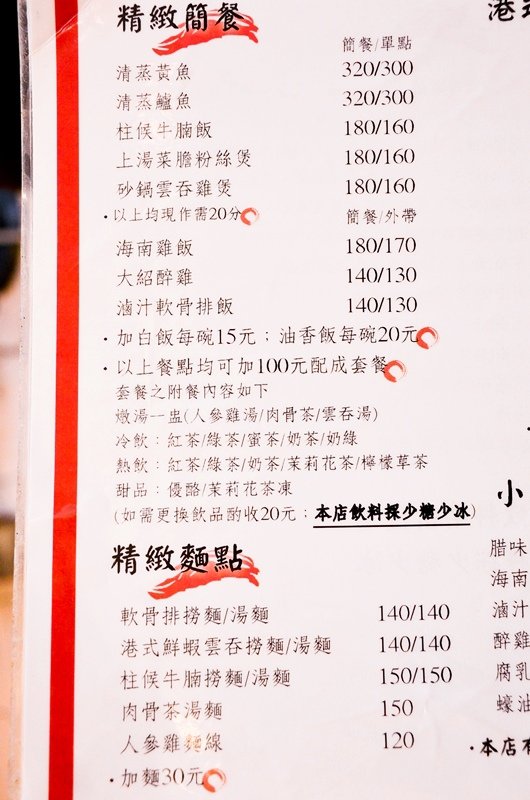 精緻簡餐
簡餐/單點
清蒸黃魚 320/300
清蒸鱸魚 320/300
柱候牛腩飯 180/160
上湯菜膽粉絲煲 180/160
砂鍋雲吞雞煲 180/160
·以上均現作需20分 簡餐/外帶
海南雞飯 180/170
大紹醉雞 140/130
滷汁軟骨排飯 140/130
·加白飯每碗15元；油香飯每碗20元
·以上餐點均可加100元配成套餐
套餐之附餐內容如下
燉湯一盅(人參雞湯/肉骨茶/雲吞湯)
冷飲：紅茶/綠茶/蜜茶/奶茶/奶綠
熱飲：紅茶/綠茶/奶茶/茉莉花茶/檸檬草茶
甜品：優酪/茉莉花茶凍
(如需更換飲品酌收20元；本店飲料採少糖少冰)
精緻麵點
軟骨排撈麵/湯麵 140/140
港式鮮蝦雲吞撈麵/湯麵 140/140
柱候牛腩撈麵/湯麵 150/150
肉骨茶湯麵 150
人參雞麵線 120
·加麵30元
港
小
腊味
海南
滷汁
醉雞
腐乳
蠔油
·本店有